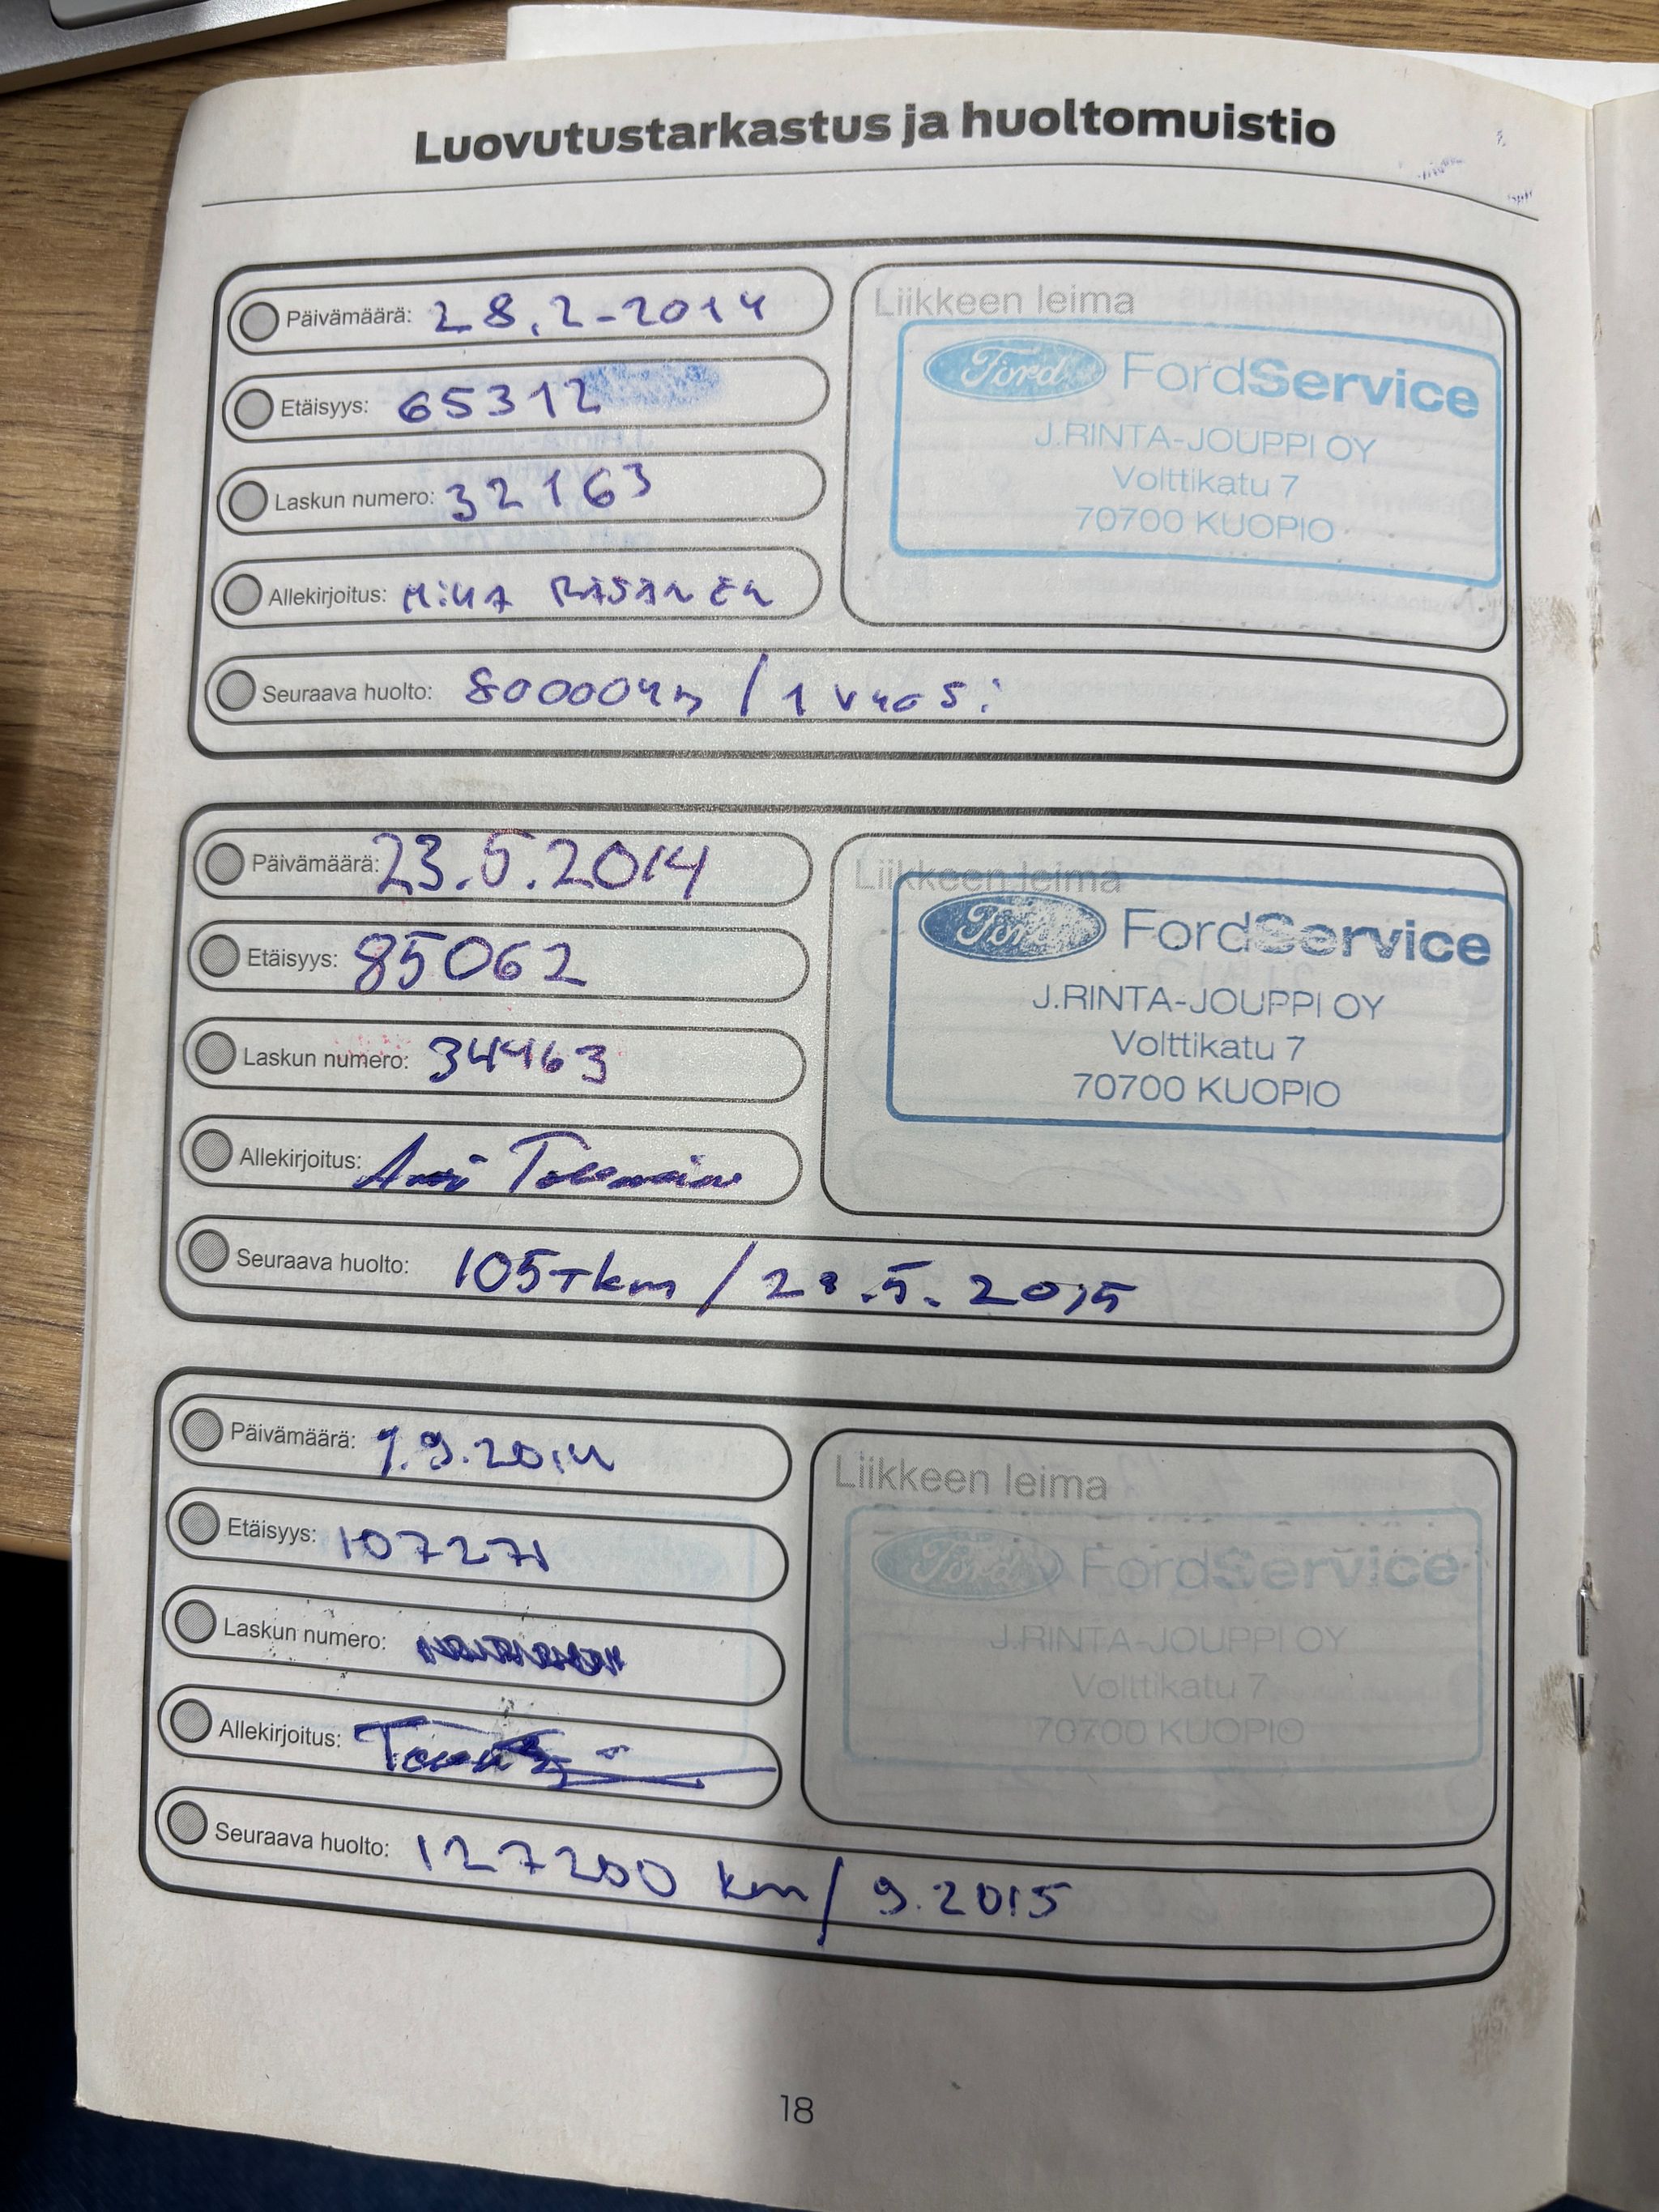 Luovutustarkastus ja huoltomuistio
Päivämäärä: 28.2-2014
Liikkeen leima
Ford FordService
J.RINTA-JOUPPI OY
Volttikatu 7
70700 KUOPIO
Etäisyys: 65312
Laskun numero: 32163
Allekirjoitus: MiKA RÄSÄNEN
Seuraava huolto: 80000km / 1 vuosi
Päivämäärä: 23.5.2014
Liikkeen leima
Ford FordService
J.RINTA-JOUPPI OY
Volttikatu 7
70700 KUOPIO
Etäisyys: 85062
Laskun numero: 34463
Allekirjoitus:
Seuraava huolto: 105Tkm / 23.5.2015
Päivämäärä: 1.9.2014
Liikkeen leima
Ford FordService
J.RINTA-JOUPPI OY
Volttikatu 7
70700 KUOPIO
Etäisyys: 107271
Laskun numero:
Allekirjoitus:
Seuraava huolto: 127200 km / 9.2015
18